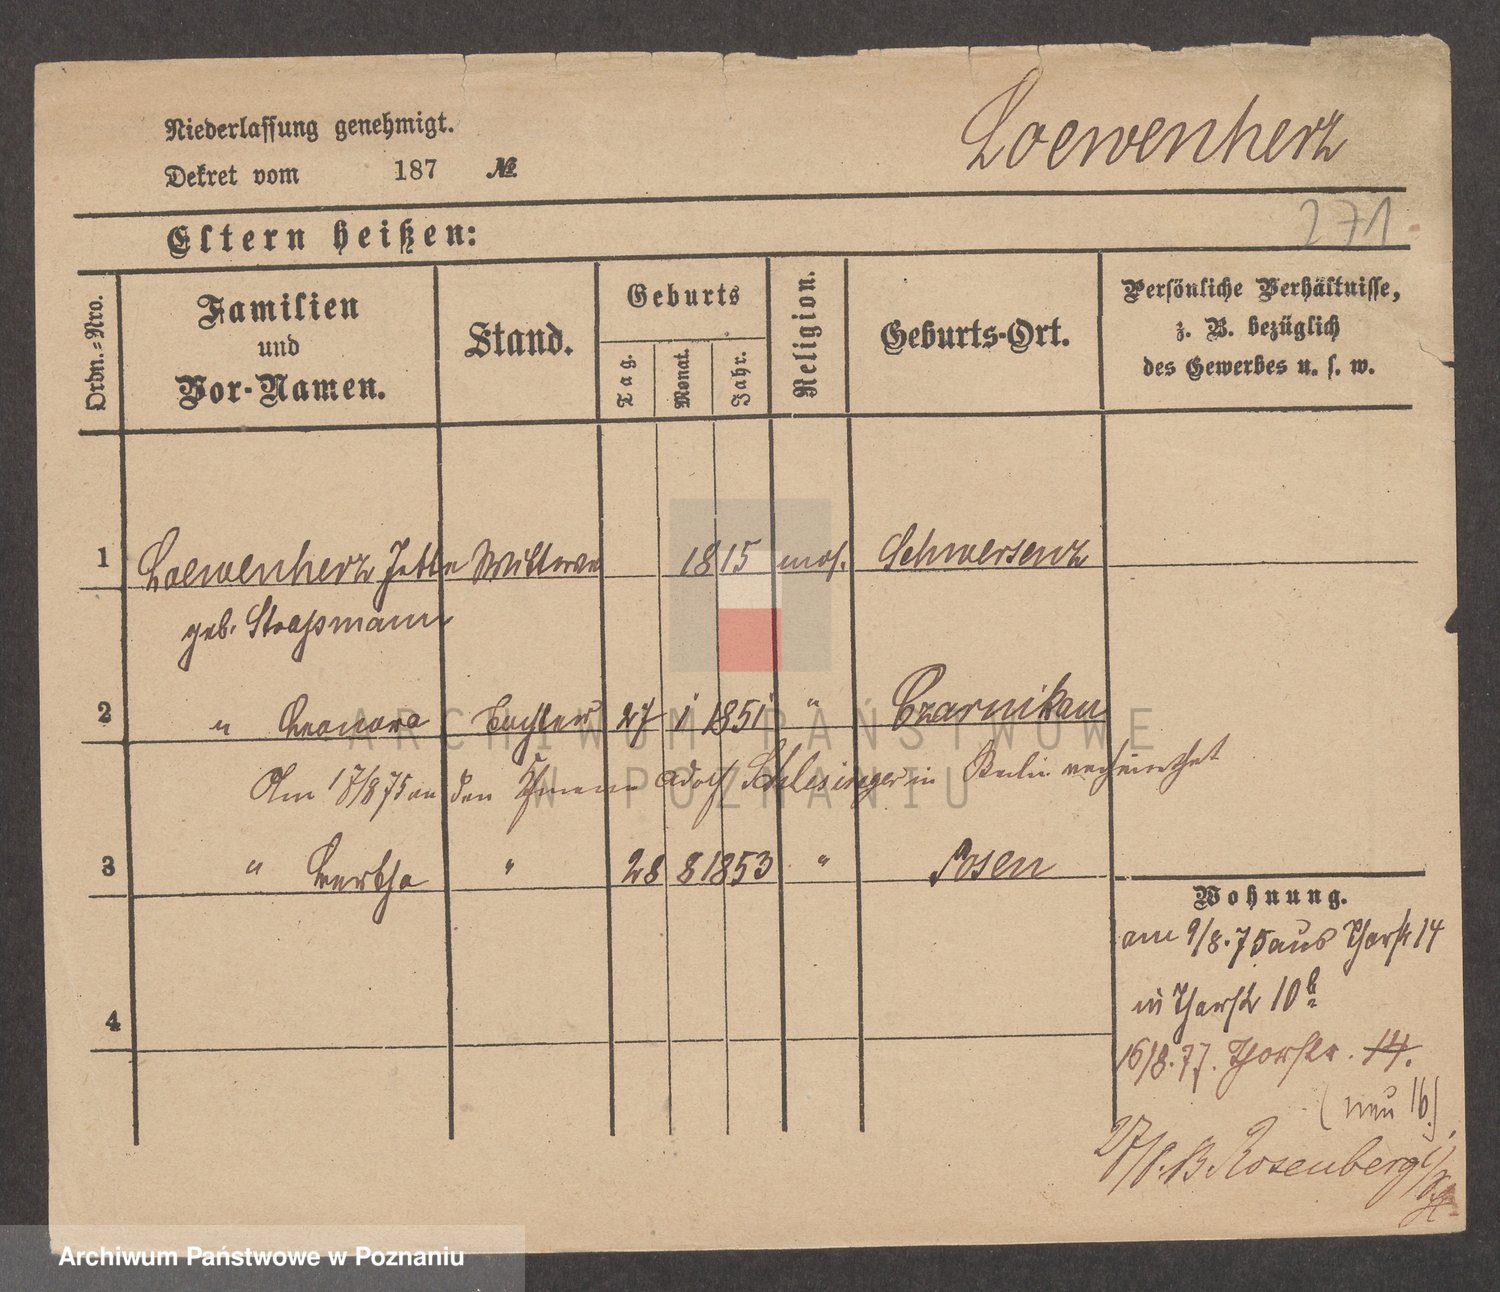 Niederlassung genehmigt.
Loewenherz
Dekret vom 187 №
271
Eltern heißen:
Ordn.-Nro.
Familien
und
Vor-Namen.
Stand.
Geburts
Tag.
Monat.
Jahr.
Religion.
Geburts-Ort.
Persönliche Verhältnisse,
z. B. bezüglich
des Gewerbes u. s. w.
1 Loewenherz Jette Wittwe 1815 mos. Schwersenz
geb. Straßmann
2 " Leonora Tochter 27 1 1851 " Czarnikau
Am 17/8 75 an den Adolf Schlesinger in Berlin verheirathet
3 " Bertha " 28 8 1853 " Posen
Wohnung.
am 9/8. 75 aus Thorstr 14
in Thorstr 10b
16/8. 77. Thorstr. 14.
(neu 16)
27/8. B. Rosenberg
4
ARCHIWUM PAŃSTWOWE
W POZNANIU
Archiwum Państwowe w Poznaniu